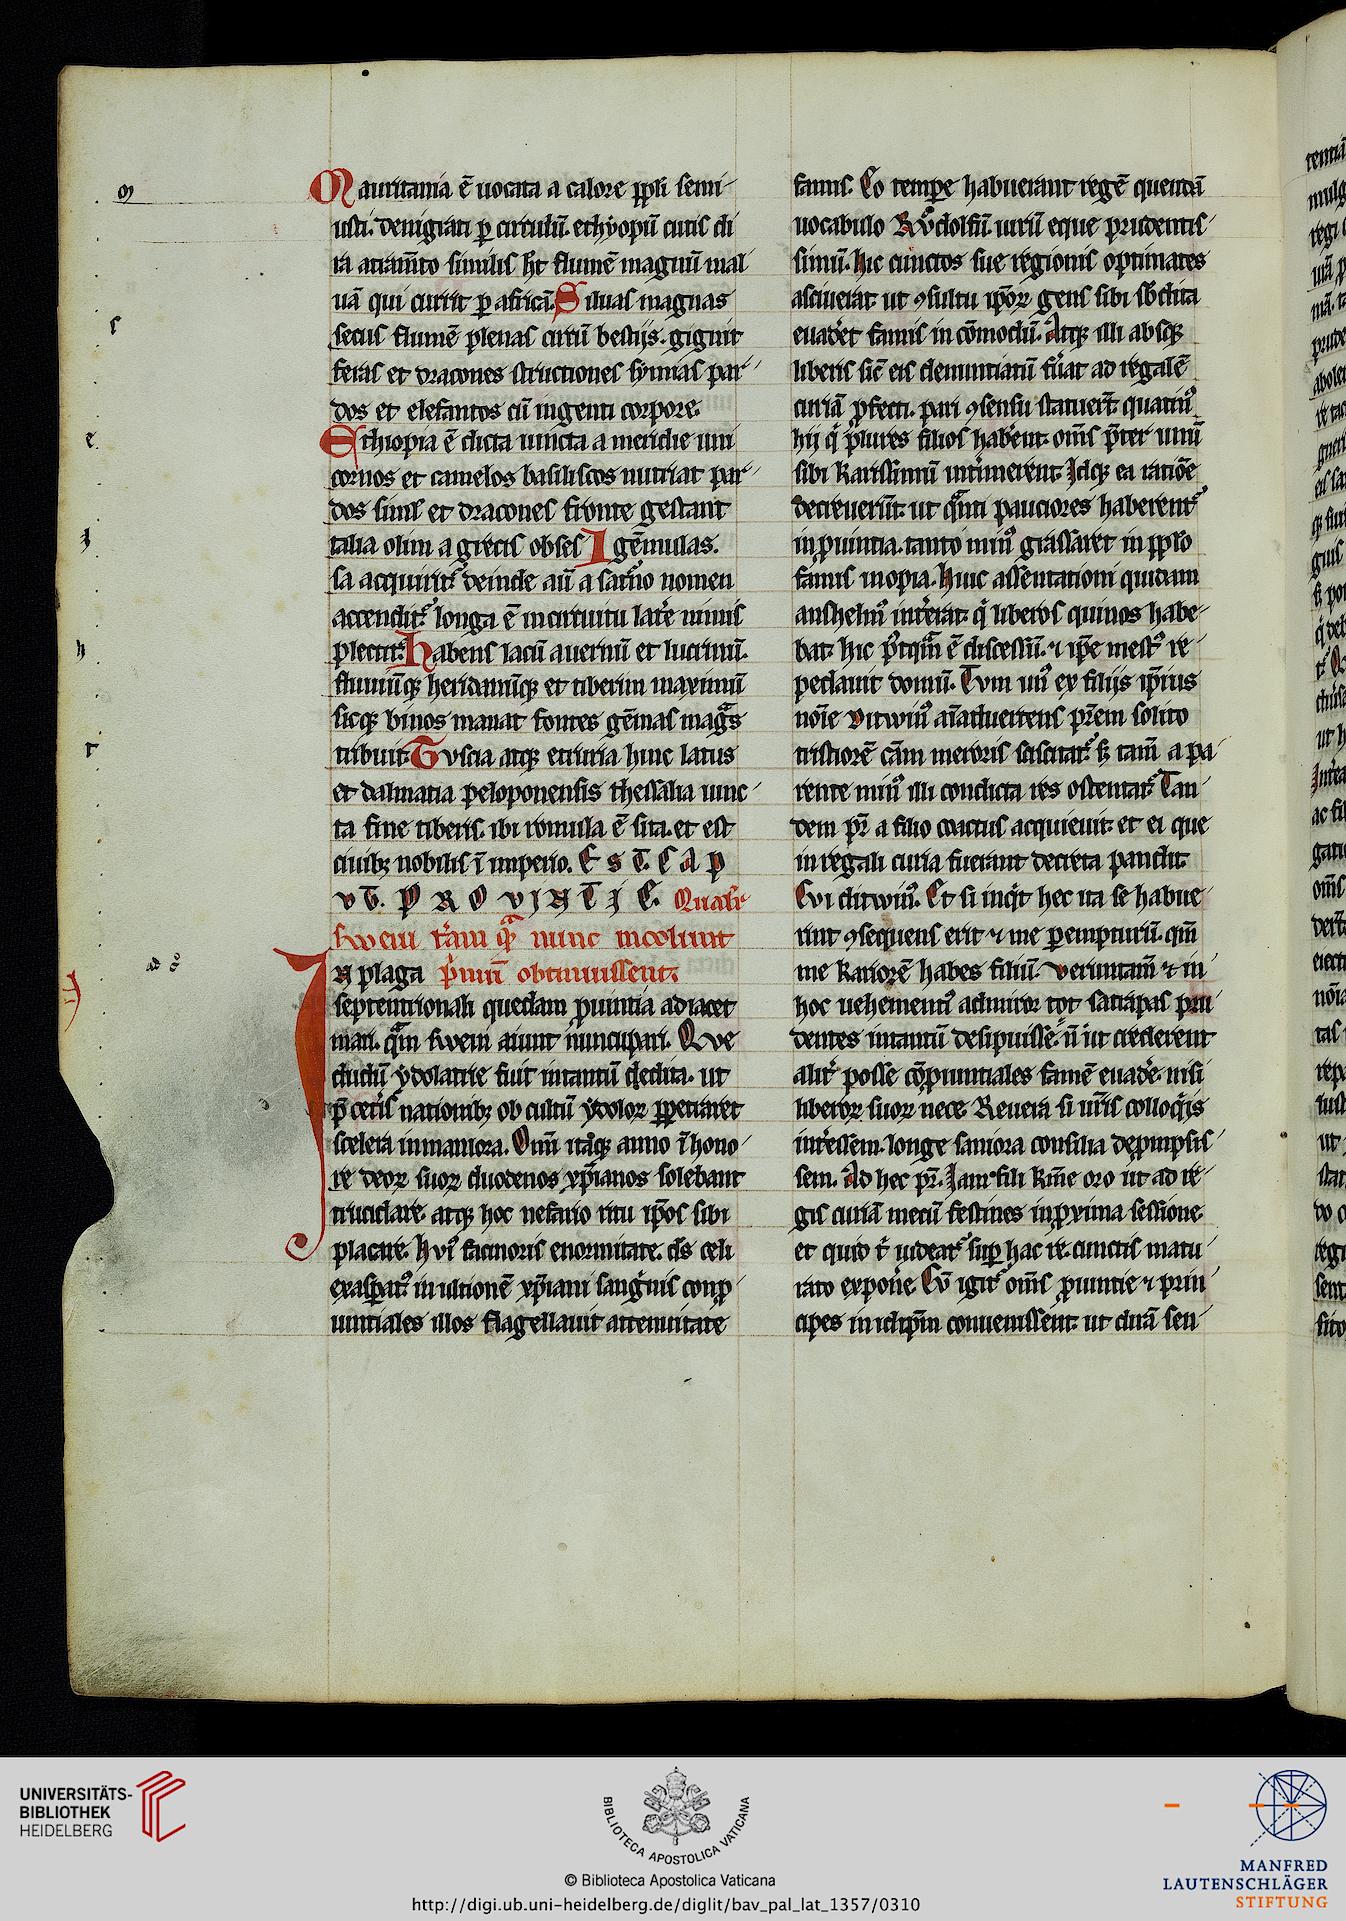 Mauritania ē uocata a calore ppli semi
usti. denigrati p circulū. ethyopū cutis di
ra atramto similis ht flumē magnū mal
uā qui currit p africā. Siluas magnas
secus flumē plenas cirtū bestijs. gignit
feras et dracones structiones symias par
dos et elefantos cū ingenti corpore.
Ethiopia ē dicta iuncta a meridie uni
cornos et camelos basiliscos nutriat par
dos simł et dracones fronte gestant
talia olim a grecis obses gēmulas. I
sa acquirit᷑ deinde aū a satīno nomen
accendit᷑ longa ē incircuitu late nimis
plectit᷑ Habens lacū auernū et lucrinū.
fluuiūqꝫ heridannūqꝫ et tiberim maximū
sicqꝫ binos manat fontes gēmas magᷓs
tribuit. Tvscia atqꝫ etruria hinc latus
et dalmatia peloponensis thessalia iunc
ta fine tiberis. ibi romula ē sita. et est
ciuibꝫ nobilis ī imperio. E S T. C A P
VT. P R O V I N T I E. Qualr
swevi t̄ram qᷓ nunc incolunt
IN plaga p̄mum obtinuissent.
septentrionali quedam ꝓuintia adiacet
mari. qᷓm swevi aiunt nuncupari. Qve
dudū ydolatrie fuit intantū dedita. ut
p̄ cet̄is nationibꝫ ob cultū ydoloꝝ ꝑpetraret
scelera inmaniora. Omī itaqꝫ anno ī hono
re deoꝝ suoꝝ duodenos xp̄ianos solebant
trucidare. atqꝫ hoc nefario ritu ip̄os sibi
placare. hvı᷒ facinoris enormitate. ds celi
exasꝑat᷒ in ultionē xp̄iani sanḡnis conp
uintiales illos flagellauit attenuitate
famis. Eo tempe habuerant regē quendā
uocabulo Rvͦdolfū. uirū eque prudentis
simū. hic cunctos sue regionis optimates
asciuerat. ut ꝯsultu ip̄oꝝ gens sibi sb̄dita
euadet famis incōmodū. Atqꝫ illi absqꝫ
liberis sic̄ eis denuntiatū fu̅at ad regalē
curiā ꝓfecti. pari ꝯsensu statuert̄. quatin᷒
hij q̄ plures filios habe̅nt. oms p̄ter unū
sibi karissimū int̄imerent. Idqꝫ ea ratiōe
decreuerūt. ut qᷓnti pauciores haberent᷑
in ꝓuintia. tanto min᷒ grassaret᷑ in pplo
famis inopia. huic assentationi quidam
anshelm᷒ int̄erat. q̄ liberos quinos habe
bat. hic p᷒tqᷓm ē discessū. ⁊ ip̄e mest᷒ re
pedauit domū. Tvm un᷒ ex filijs ip̄ius
nōie ditwin᷒ aīaduertens p̄rem solito
tristiorē cām meroris sciscitat᷑. s̄ tam̄ a pa
rente min᷒ illi condicta res ostentat᷑. Tan
dem p̄r a filio coactus acquieuit. et ei que
in regali curia fuerant decreta pandit.
Cvi ditwin᷒. Et si inqͥt hec ita se habue
rint ꝯsequens erit ⁊ me ꝑempturū. qm̄
me kariorē habes filiū. veruntam̄ ⁊ in
hoc uehementi᷒ admiror tot satrapas pru
dentes intantū desipuisse. n̄ ut crederent
alit̄ posse cōꝓuintiales famē euadere. nisi
liberoꝝ suoꝝ nece. Reuera si uris colloqͥis
int̄essem. longe saniora consilia depmpsis
sem. Ad hec p̄r. Iam fili kme oro ut ad re
gis curiā mecū festines in ꝓxima sessione.
et quid t̄ uideat᷑ suꝑ hac re. cunctis matu
rato expone. Cū igit᷑ oms ꝓuintie ⁊ prin
cipes in idipm̄ conuenissent. ut dictā sen
UNIVERSITÄTS-
BIBLIOTHEK
HEIDELBERG
BIBLIOTECA APOSTOLICA VATICANA
© Biblioteca Apostolica Vaticana
http://digi.ub.uni-heidelberg.de/diglit/bav_pal_lat_1357/0310
MANFRED
LAUTENSCHLÄGER
STIFTUNG